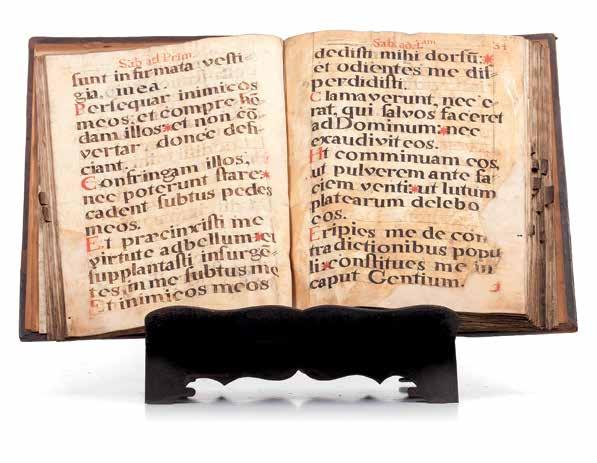 Sab. ad Prim.
sunt infirmata vesti-
gia, mea.
Persequar inimicos
meos: et compre hē
dam illos:* et non cō
vertar, donec defi-
ciant.
Confringam illos,
nec poterunt stare:*
cadent subtus pedes
meos.
Et præcinxisti me
virtute adbellum:* et
supplantasti insurgē
tes, in me subtus me
Et inimicos meos
Sab. ad I.am 34
dedisti mihi dorsū:*
et odientes me dis-
perdidisti.
Clamaverunt, nec e-
rat, qui salvos faceret
ad Dominum:* nec
exaudivit eos.
Et comminuam eos,
ut pulverem ante fa
ciem venti:* ut lutum
platearum delebo
eos.
Eripies me de con
tradictionibus popu
li:* constitues me in
caput Gentium.